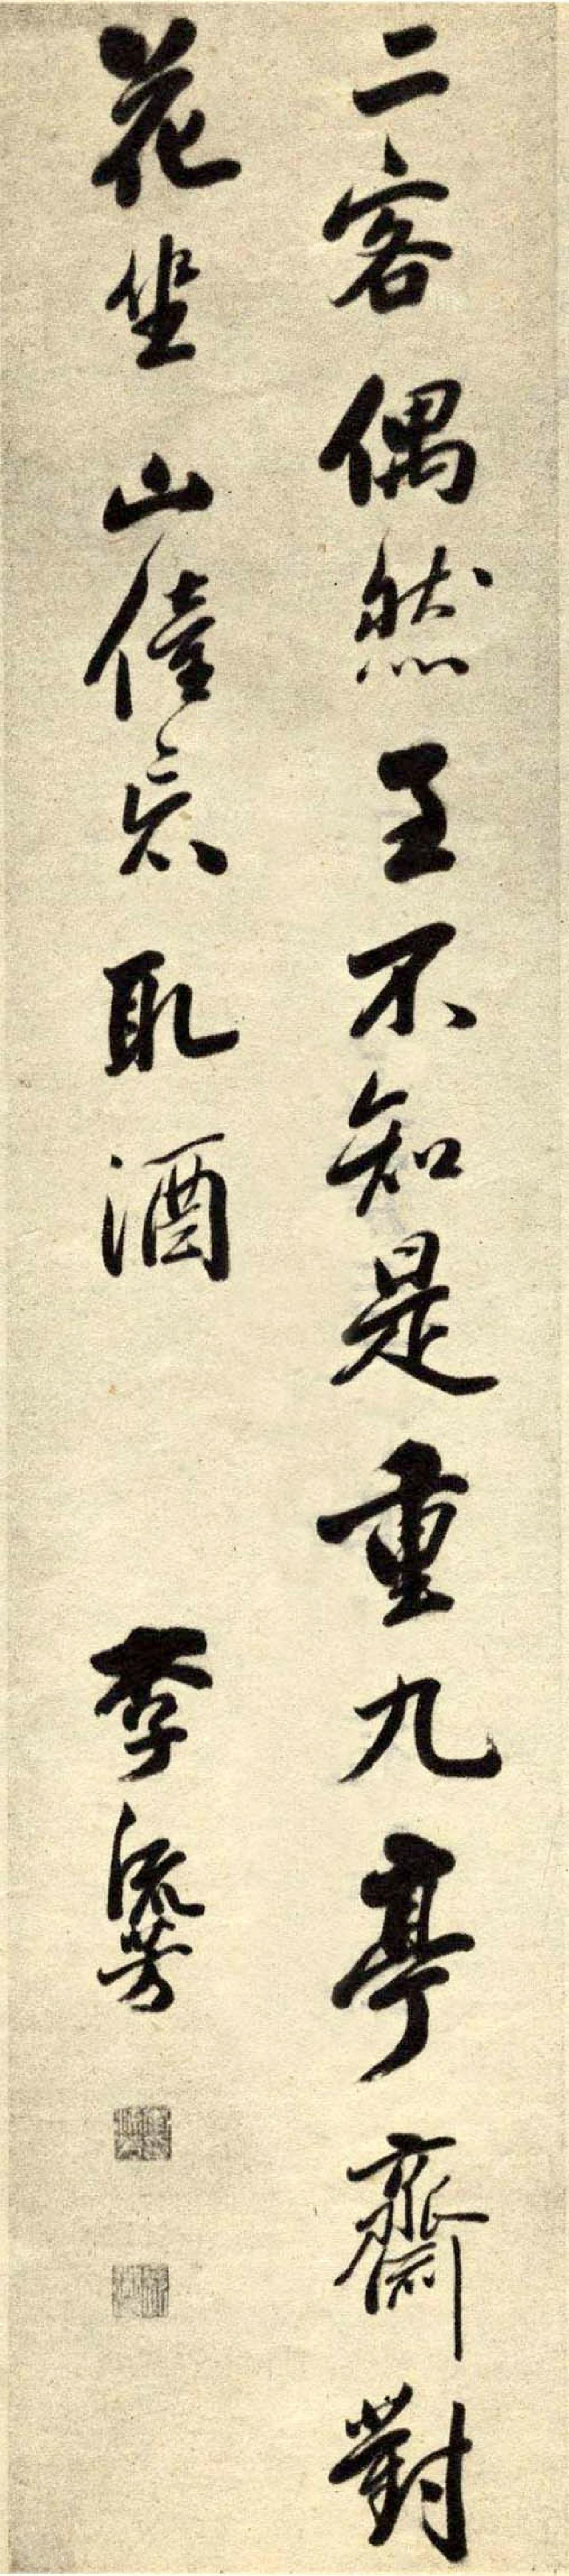 二客偶然至不知是重九亭齋對
花坐山僮忘取酒 李流芳